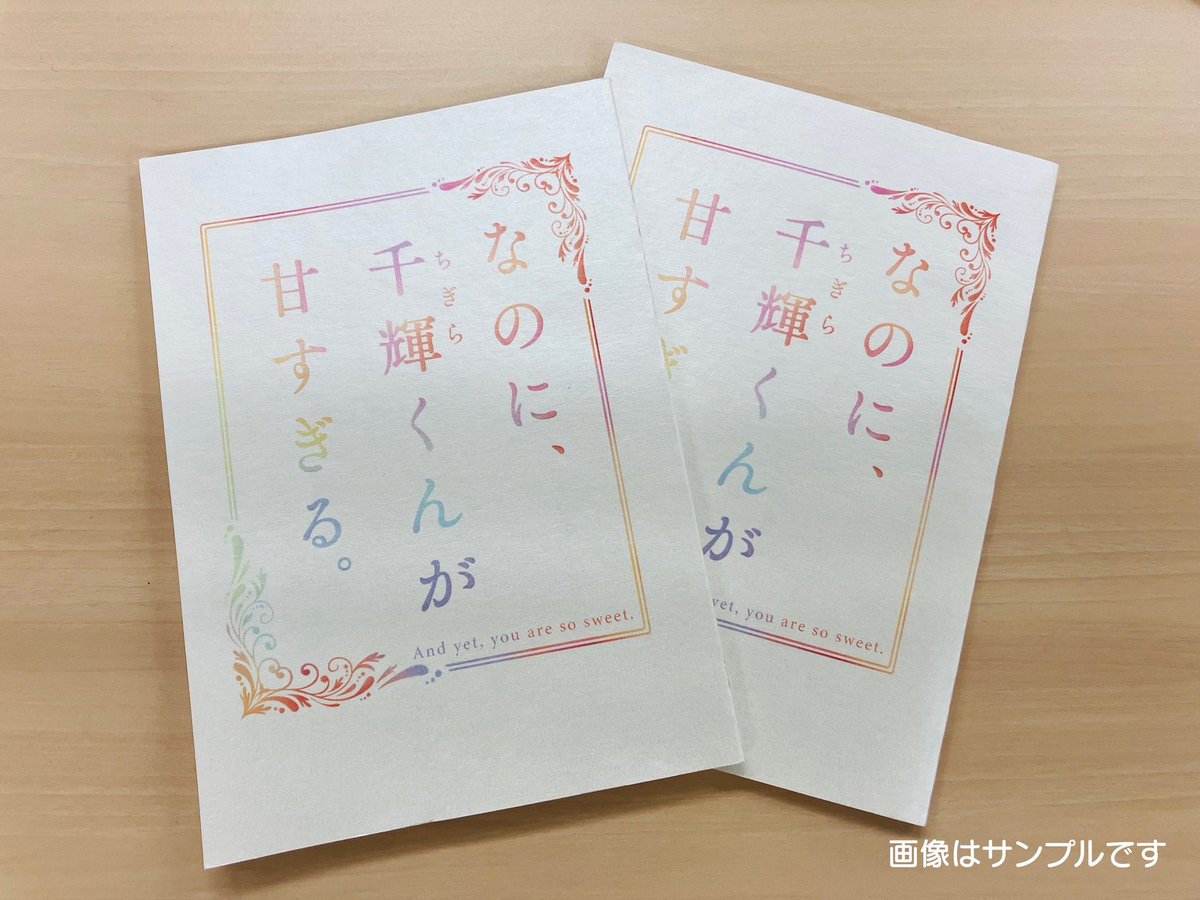 なのに、
千輝くんが
ちぎら
甘すぎる。
And yet, you are so sweet.
なのに、
千輝くんが
ちぎら
甘すぎ
yet, you are so sweet.
画像はサンプルです